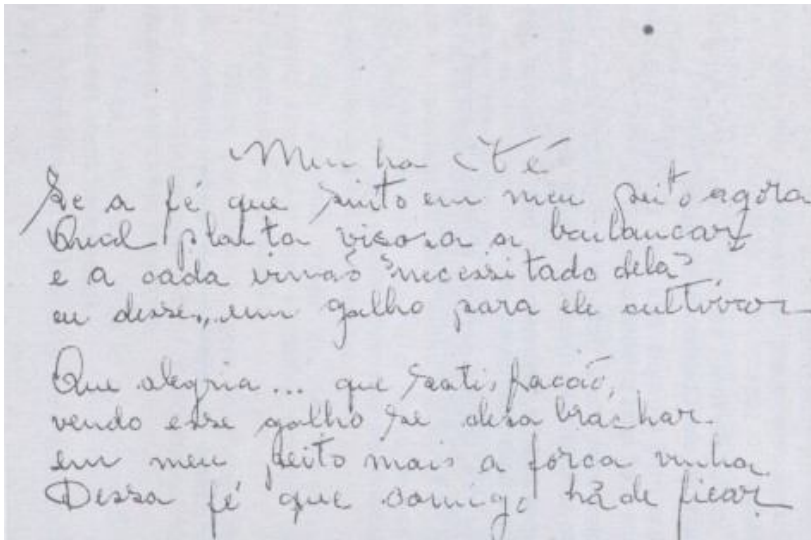 Minha Fé
Se a fé que sinto em meu peito agora
Qual planta viçosa a
e a cada irmão "necessitado dela"
eu desse,, um galho para ele cultivar
Que alegria... que satisfacão,
vendo esse galho se desabrochar.
em meu peito mais a força vinha
Dessa fé que comigo háde ficar